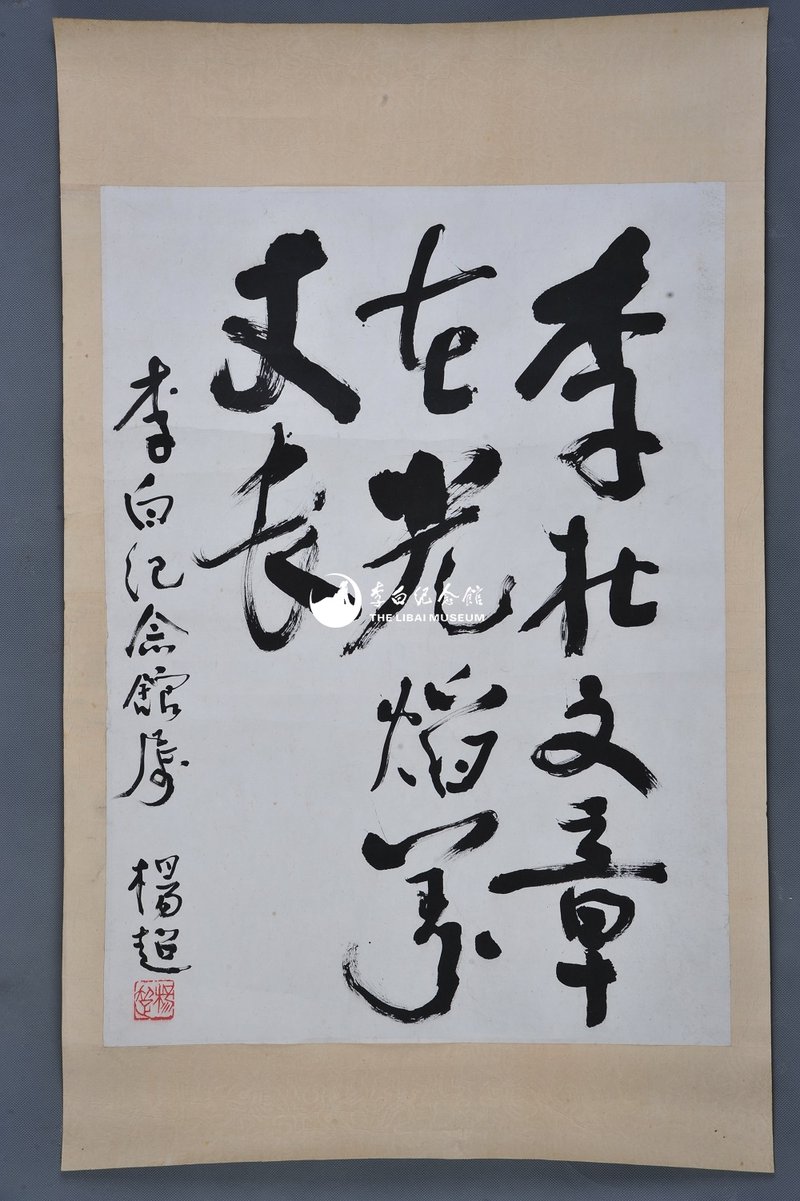 李杜文章
在光焰萬
丈長
李白纪念館属 楊超
楊超
李白纪念館
THE LIBAI MUSEUM